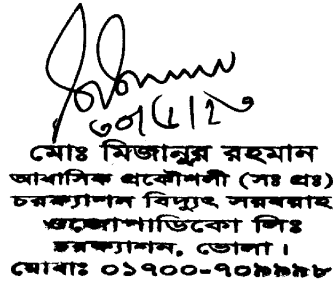 ৩০/৫/২৩
মোঃ মিজানুর রহমান
আবাসিক প্রকৌশলী (সঃ প্রঃ)
চরফ্যাশন বিদ্যুৎ সরবরাহ
ওজোপাডিকো লিঃ
চরফ্যাশন, ভোলা।
মোবাঃ ০১৭০০-৭০৯৯৯৮